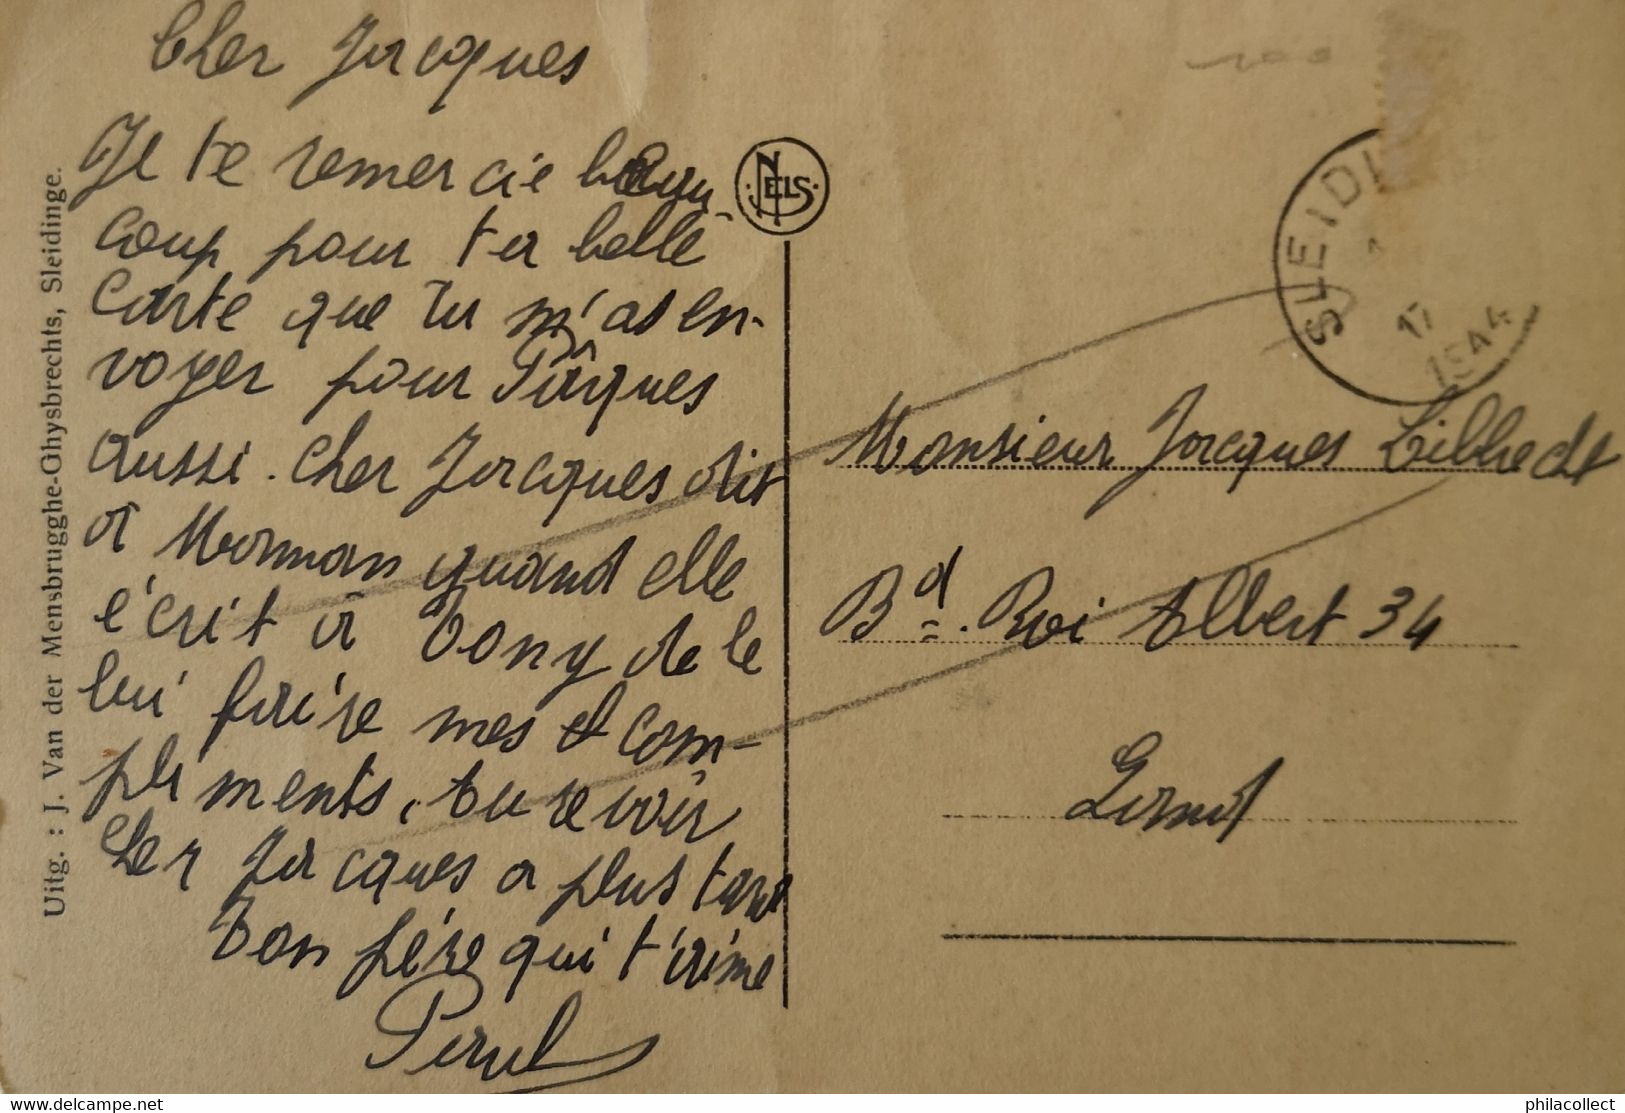 Cher Jacques
Je te remercie beau
coup pour ta belle
carte que tu m'as en-
voyer pour Pâques
aussi. Cher Jacques dit
à Maman quand elle
écrit à Tony de le
lui faire mes com-
pliments, au revoir
Cher Jacques a plus tard
Ton père qui t'aime
Paul
Uitg. : J. Van der Mensbrugghe-Ghysbrechts, Sleidinge.
NELS
SLEIDI
17
1944
Monsieur Jacques
Bd. Roi Albert 34
Gand
delcampe.net
philacollect